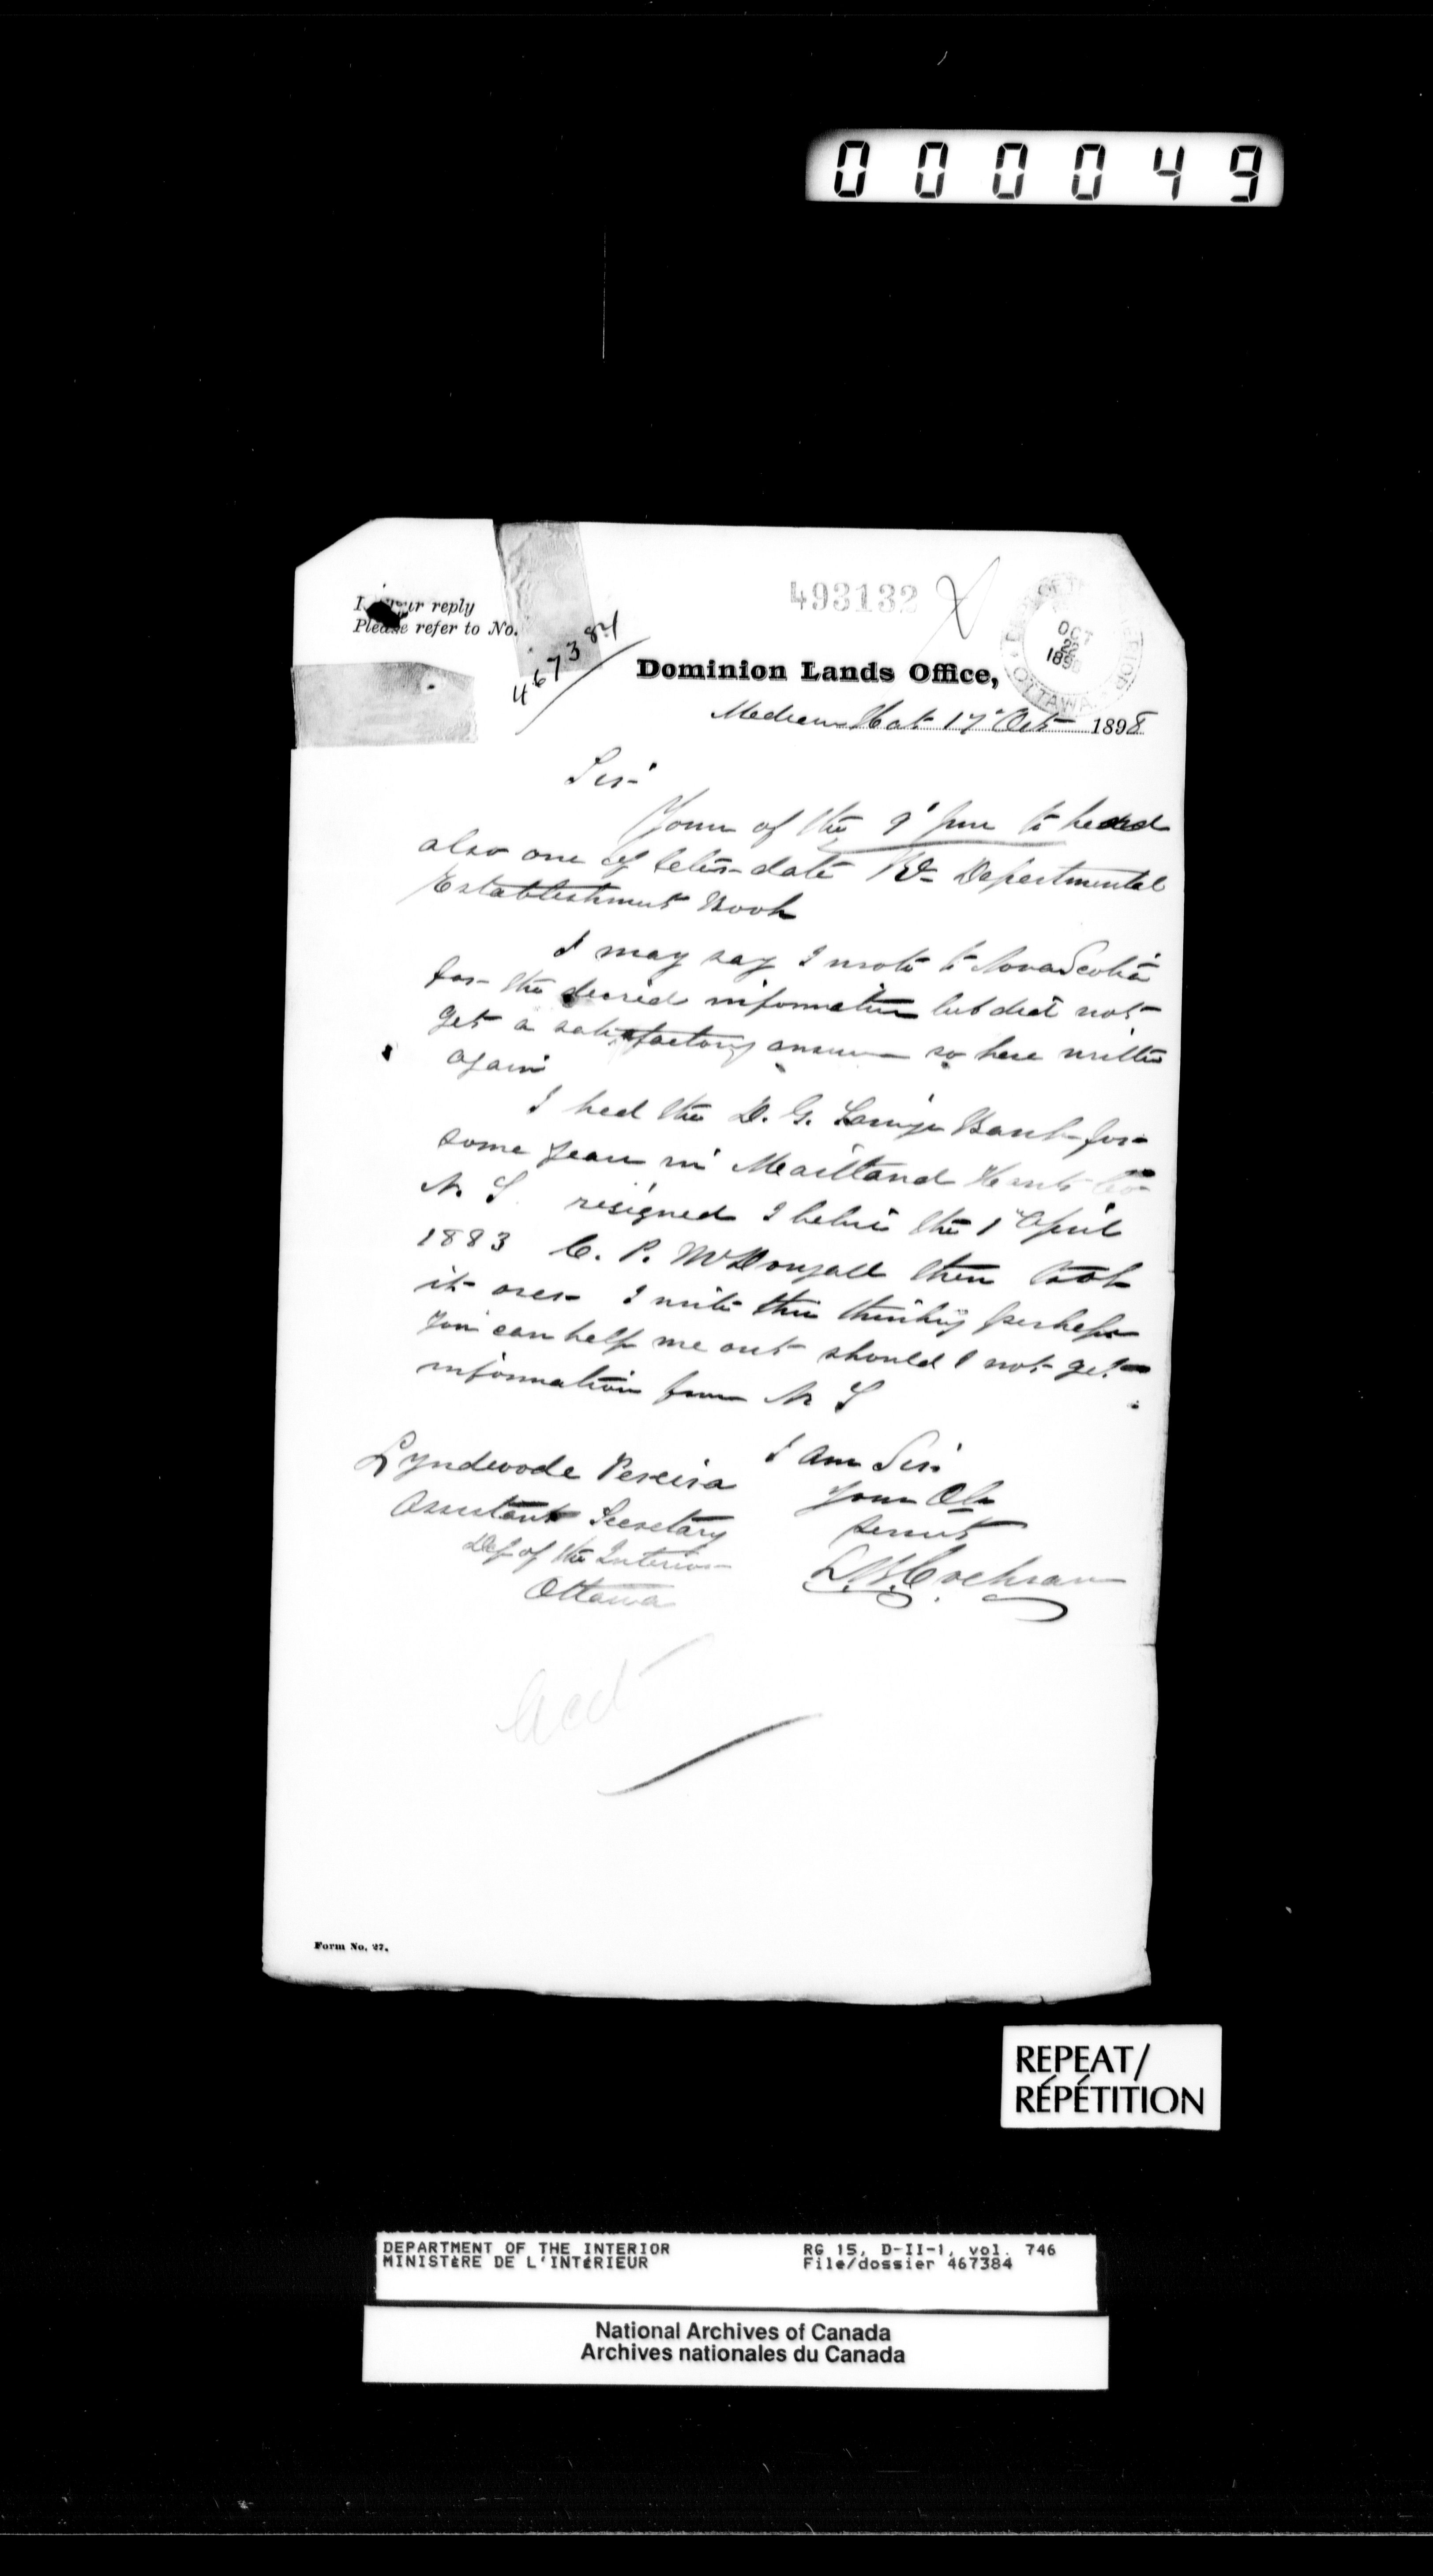 000049
493132
In your reply
Please refer to No.
467384
DEPT OF THE INTERIOR
OCT
22
1898
OTTAWA
Dominion Lands Office,
Medicine Hat 17" Oct 1898
Sir
Yours of the 9' June to hand
also one of later date Re Departmental
Establishment Book
I may say I wrote to Nova Scotia
for the desired information but did not
get a satisfactory answer so have written
again
I had the D. G. Savings Bank for
some years in Maitland Hants Co
N. S resigned I believe the 1" April
1883 C. P. McDougall then took
it over I write this thinking perhaps
you can help me out should I not get
information from N S
I am Sir
Your Ob
servant
Cochran
Lyndwode Pereira
Assistant Secretary
Dep of the Interior
Ottawa
Form No. 27.
REPEAT/
RÉPÉTITION
DEPARTMENT OF THE INTERIOR RG 15, D-II-1, vol. 746
MINISTÈRE DE L'INTÉRIEUR File/dossier 467384
National Archives of Canada
Archives nationales du Canada